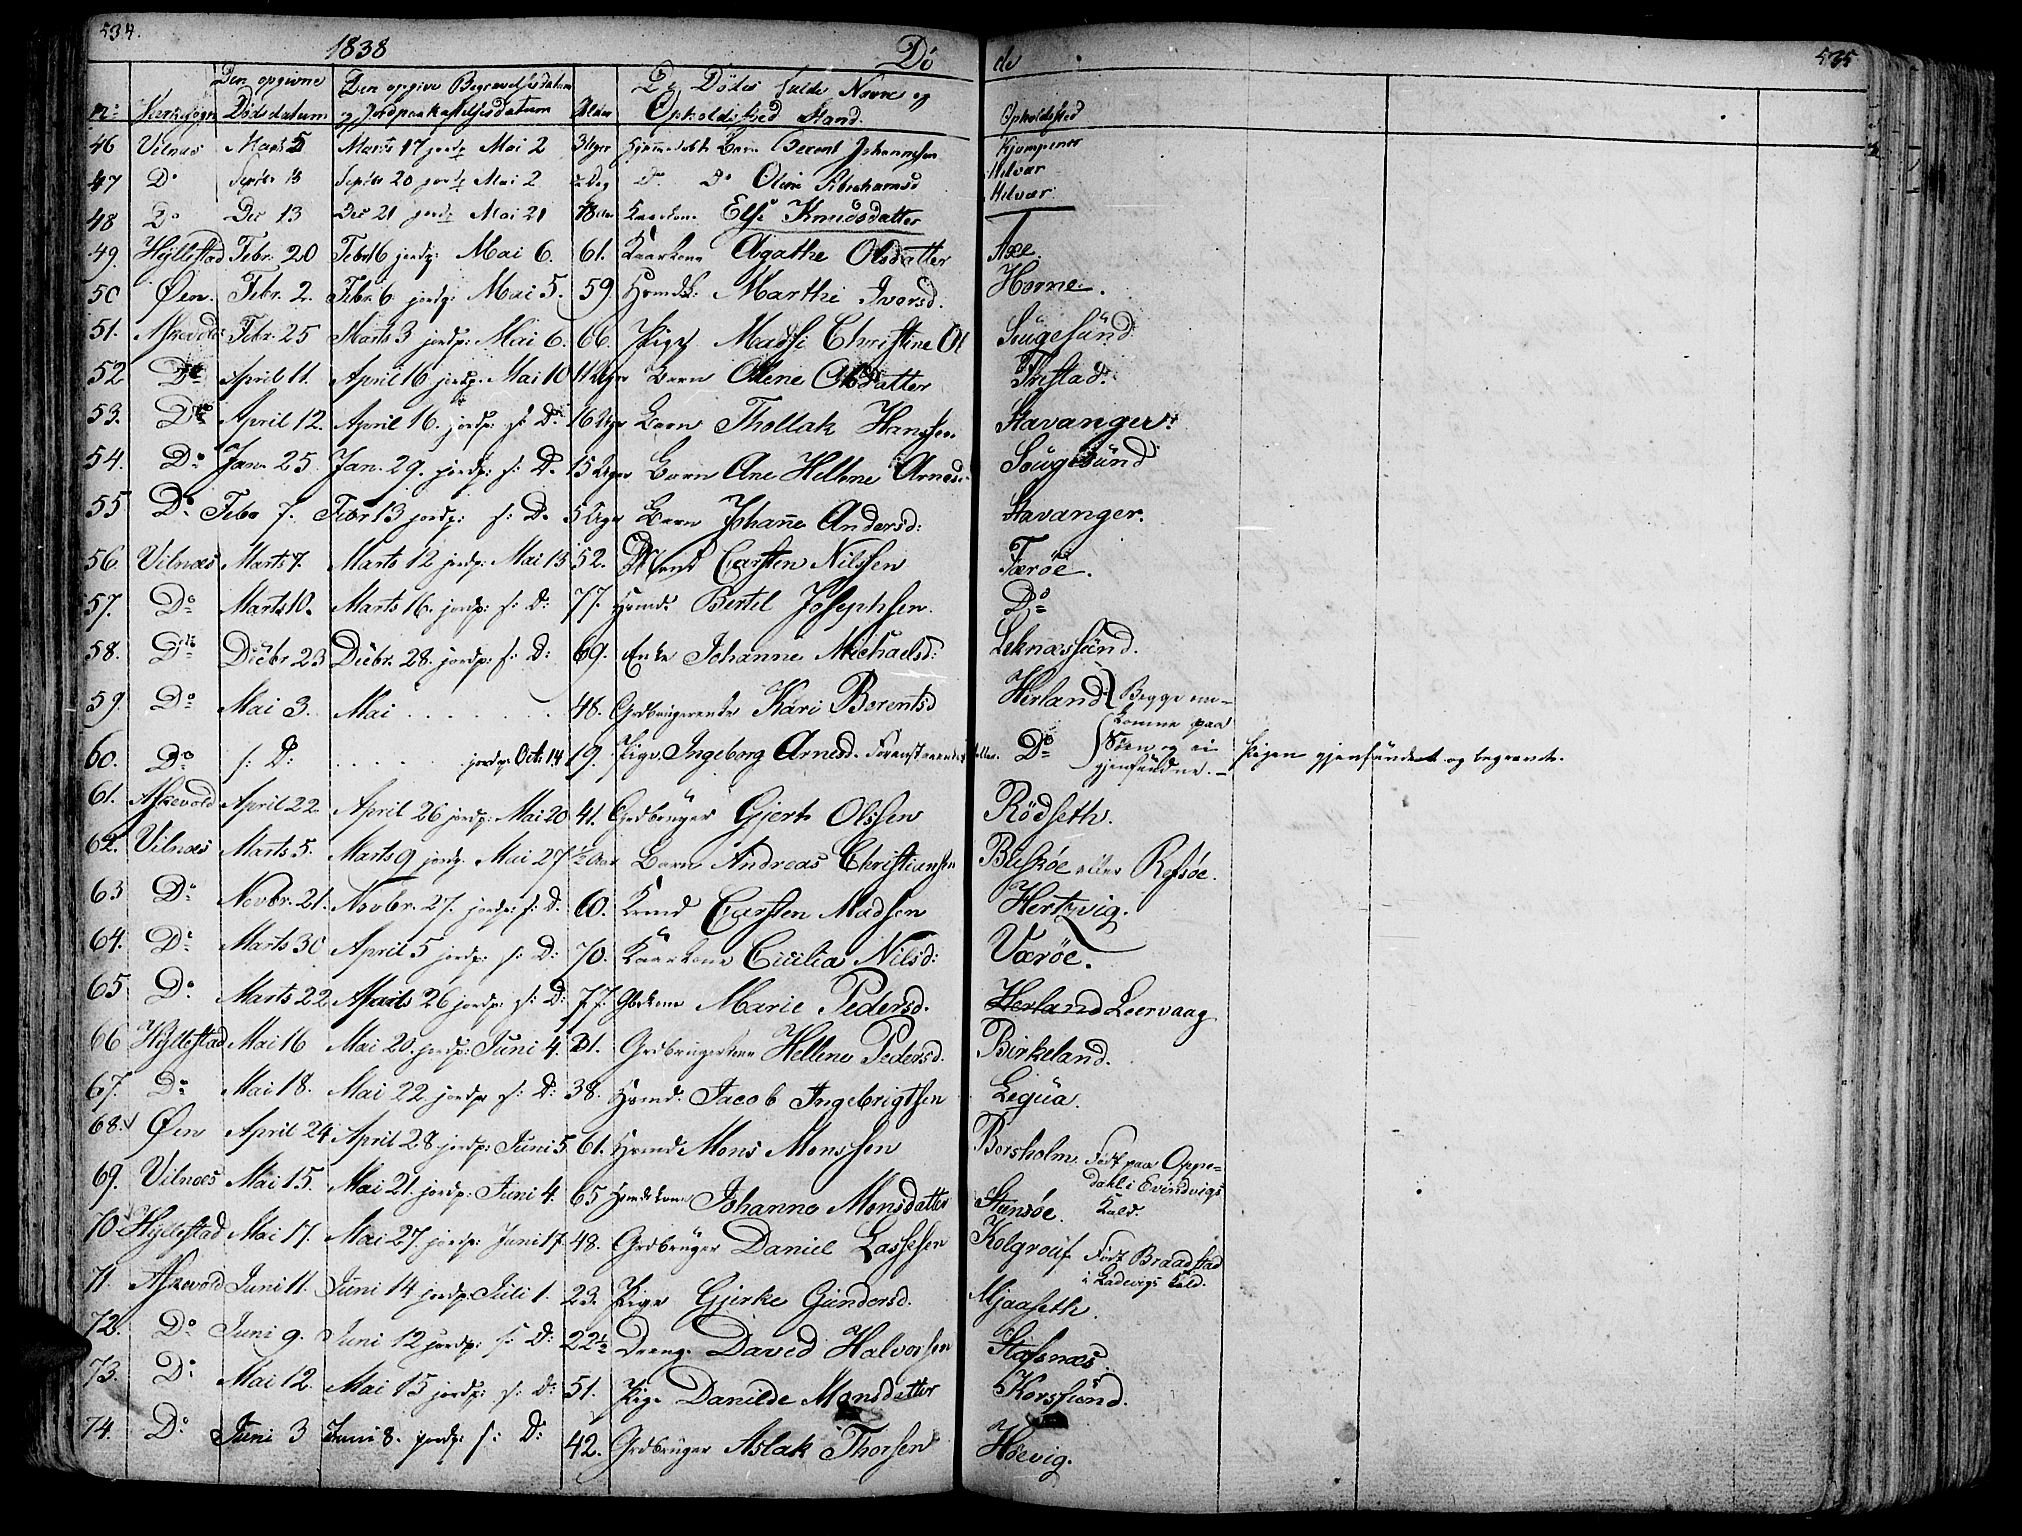 534.
1838
Dö
de
535
No Kirkesogn Den opgivne Dödsdatum Den opgivne Begravelsesdatum og Jordpaakastelsesdatum Alder De Dödes fulde Navne og Opholdssted Stand. Opholdssted
46 Vilnæs Marts 5 Marts 17 jordp Mai 2 3 Uger Barn Berent Johannesen
47 Do Septbr 13 Septbr 20 jordp Mai 2 Dag Do Do Oline Abrahamsd Helvær
48 Do Dec 13 Dec 21 jordp Mai 21 78 Kaarkone Elsi Knudsdatter Helvær
49. Hyllestad Febr. 20 Febr 16 jordp: Mai 6. 61. Kaarkone Agathe Olsdatter Axe.
50 Öen. Febr. 2. Febr. 6 jordp: Mai 5. 59. Huusmd: Marthe Iversd. Horne.
51. Askevold Febr. 25 Marts 3 jordp: Mai 6. 66. Pige Madsi Christine Ol Sougesund
52 Do April 11. April 16 jordp: Mai 10 11 Uger Barn Olene Olsdatter Tristad.
53. Do April 12. April 16. jordp: s: D: 16 Uger Barn Thollak Hanssen Stavanger.
54. Do Jan. 25. Jan. 29. jordp: s: D. 15 Uger Barn Ane Hellene Arnesd: Sougesund
55 Do Febr 7. Febr 13 jordp: s: D. 5 Uger Barn Johanne Andersd: Stavanger.
56. Vilnæs Marts 7. Marts 12 jordp: Mai 13 52. Carsten Nilssen Færöe.
57. Do Marts 10. Marts 16. jordp: s: D: 77. Huusmd. Bertel Josephsen. Do
58. Do Decbr 23 Decbr. 28. jordp: s: D: 69. Enke Johanne Michaelsd: Leknæssund.
59. Do Mai 3. Mai . . . . . 48. Grdbrugerenke Kari Berentsd Herland Begge om-
komne paa
60. Do s: D: . . . . . jordp: Octb: 14 19. Pige Ingeborg Arnesd. Do Söen og ei
gjenfundne. – Pigen gjenfundet og begravet.
61. Askevold April 22. April 26 jordp: Mai 20 41. Grdbruger Gjert Olssen Rödseth.
62. Vilnæs Marts 5. Marts 9 jordp. Mai 27 1/2 Aar Barn Andreas Christiansen Buskøe eller Refsöe.
63 Do Novbr. 21. Novbr. 27. jordp: s: D. 60. Carsten Madsen Hertzvig.
64. Do Marts 30 April 5 jordp: s: D: 70. Kaarkone Cicilia Nilsd: Værøe.
65 Do Marts 22 Marts 26 jordp: s: D: 77. Marie Pedersd. Herland Leervaag
66 Hyllestad Mai 16 Mai 20. jordp: Juni 4. 31. Grdbrugerkone Hellene Pedersd. Birkeland.
67. Do Mai 18. Mai 22. jordp s: D: 38. Huusmd. Jacob Ingebrigtsen Leqüa.
68. Öen April 24 April 28 jordp: Juni 5 61. Huusmd Mons Monssen Borsholm. Födt paa Oppe-
dahl i Evindvigs
Kald.
69. Vilnæs Mai 15. Mai 21. jordp: Juni 4. 65 Huusmdskone Johanne Monsdatter Steensöe.
70 Hyllestad Mai 17. Mai 27. jordp: Juni 17. 48. Grdbruger Daniel Lassesen Kolgrouf Födt Braadstad
i Ladevigs Kald.
71. Askevold Juni 11. Juni 14 jordp: Juli 1. 23. Pige Gjerke Gundersd. Mjaaseth.
72. Do Juni 9. Juni 12 jordp: s: D: 22 1/2 Dreng. David Halvorsen Stafsnæs.
73. Do Mai 12. Mai 15 jordp: s: D: 51. Pige Danilde Monsdatter Korssund.
74. Do Juni 3 Juni 8. jordp: s: D: 42. Grdbruger Aslak Thorsen Höevig.